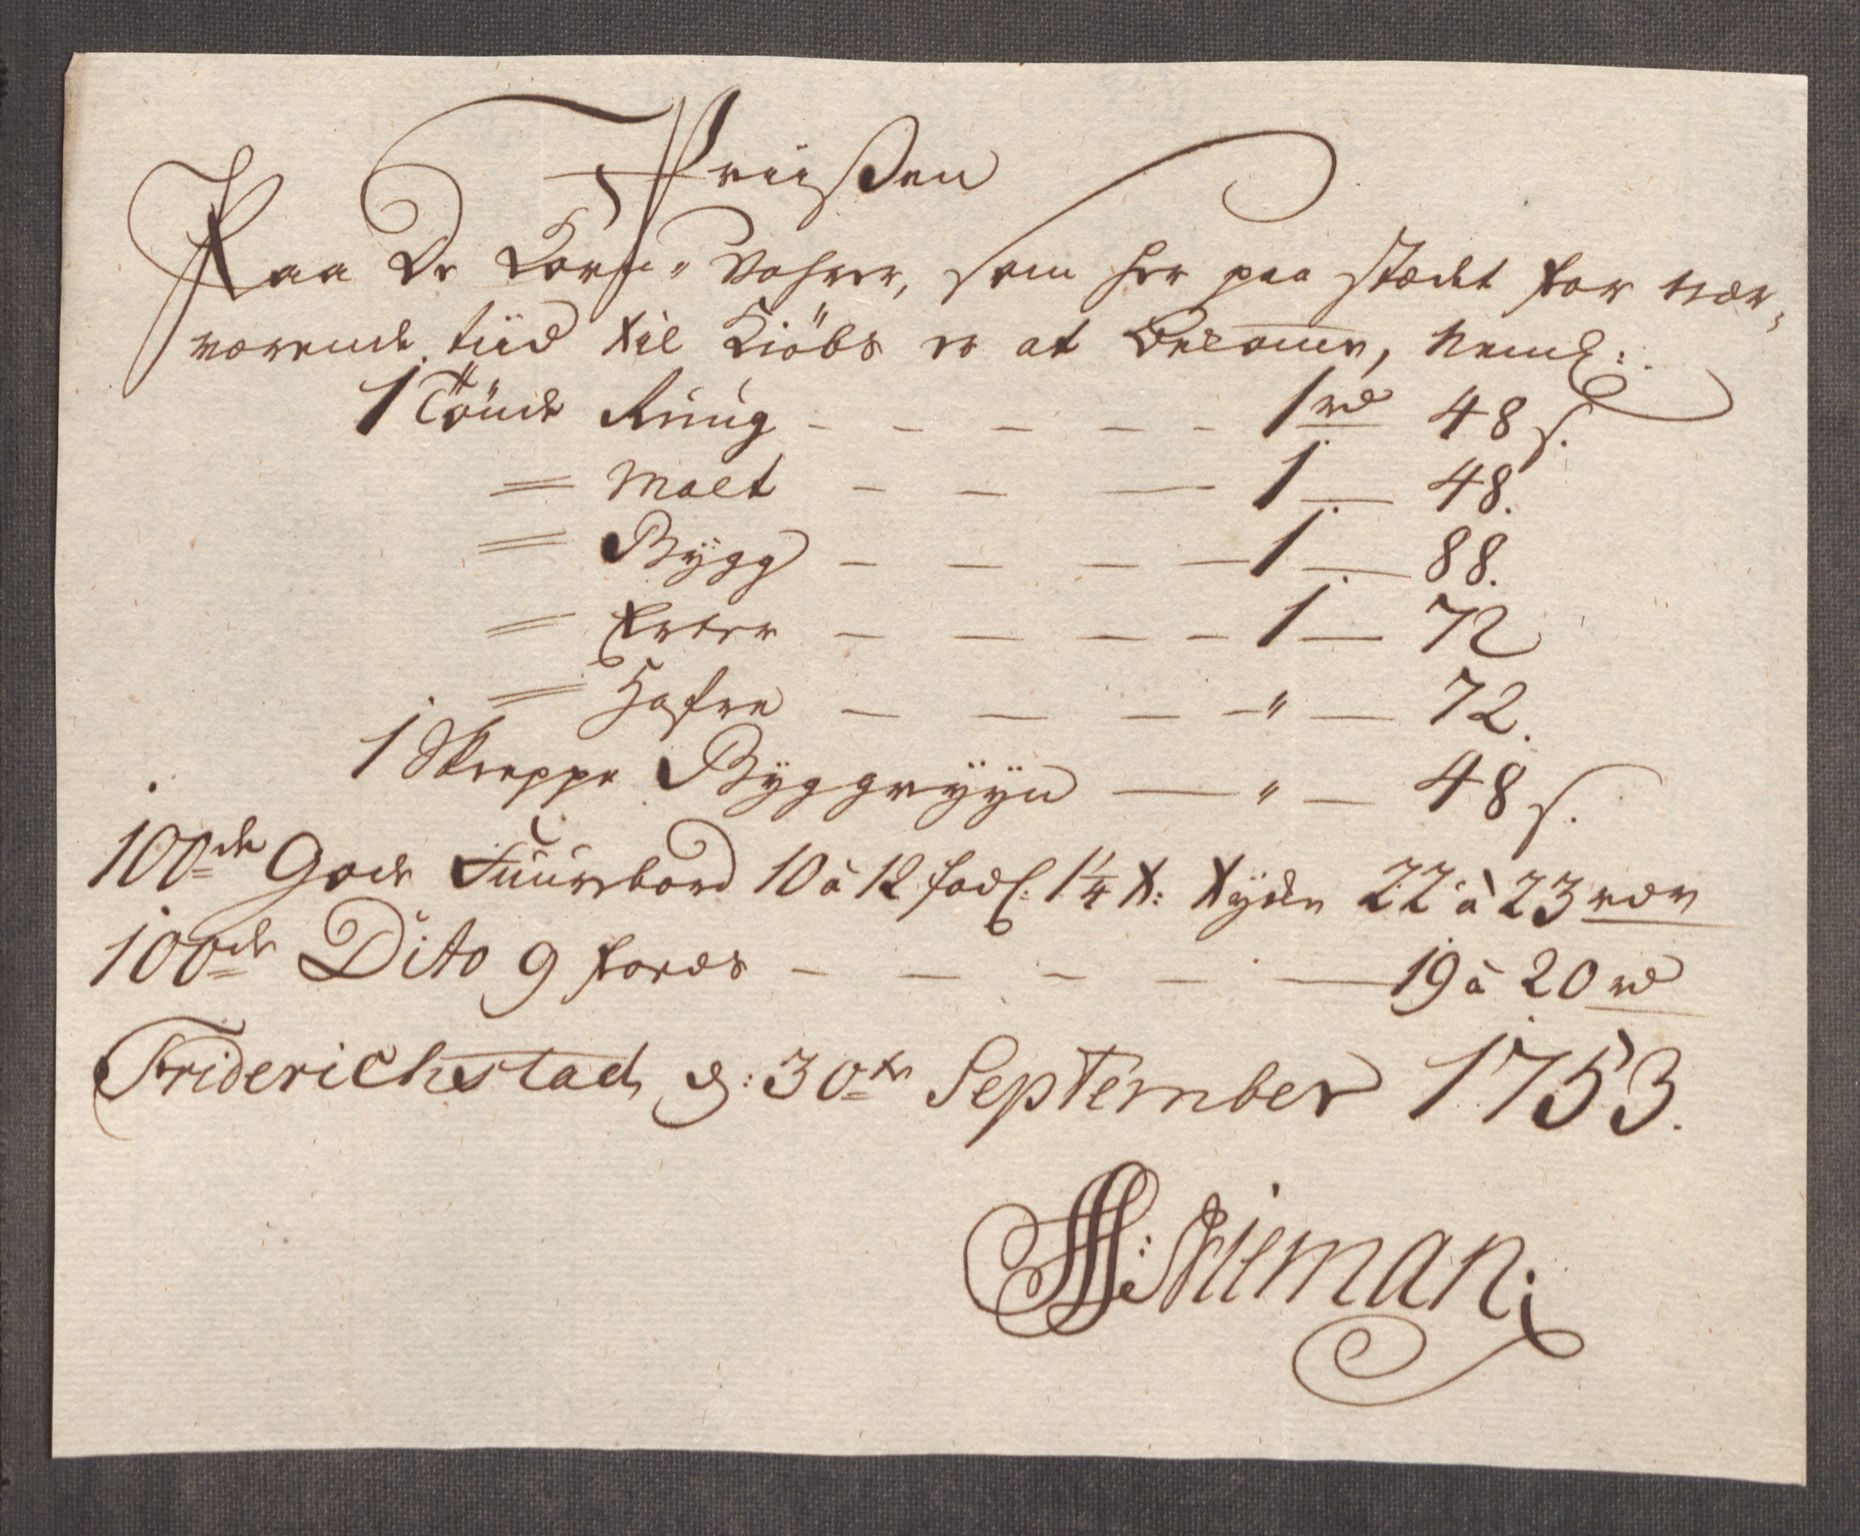 Priisen
Paa De Korn-Vahrer, som her paa stædet for nær,
værende tiid til Kiöbs er at Bekomme, Neml:
1 Tönde Ruug - - - - - 1 rd 48 s.
= Malt - - - 1. - 48.
= Bÿgg - - - - 1. - 88.
= Erter - - - - 1 - 72
= Hafre - - - - " - 72.
1 Skieppe Bÿggrÿÿn - " - 48 s.
100de Gode Fuurebord 10 à 12 fod 1 1/4 t: tÿkke 22 à 23 rdr
100de Dito 9 foeds - - - - - 19 à 20 rd
Friderichstad d: 30te September 1753.